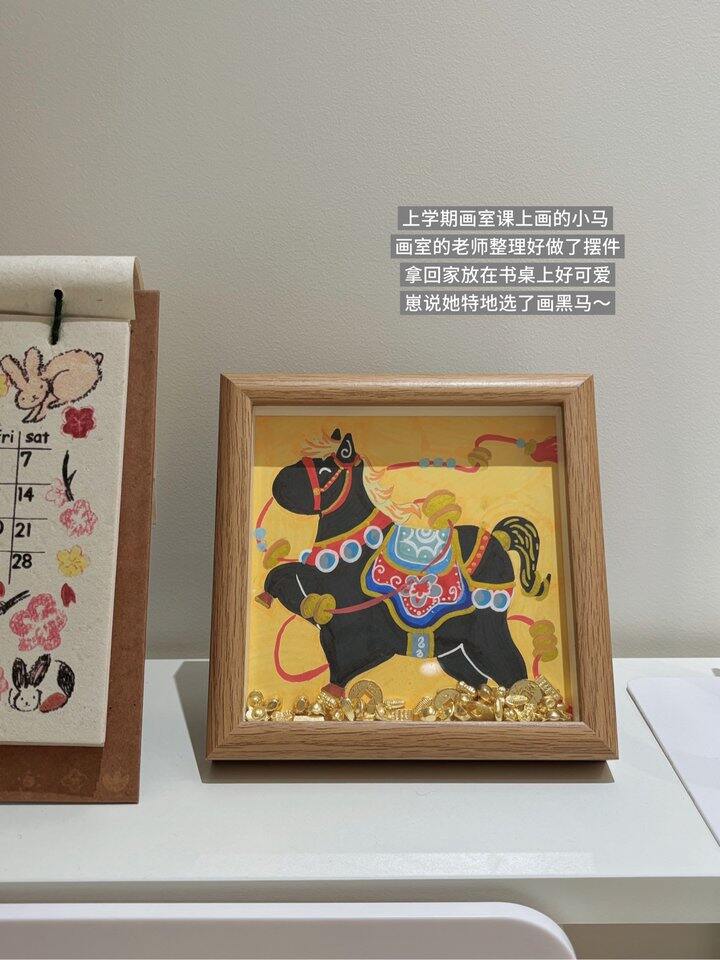 上学期画室课上画的小马
画室的老师整理好做了摆件
拿回家放在书桌上好可爱
崽说她特地选了画黑马～
fri sat
7
14
21
28